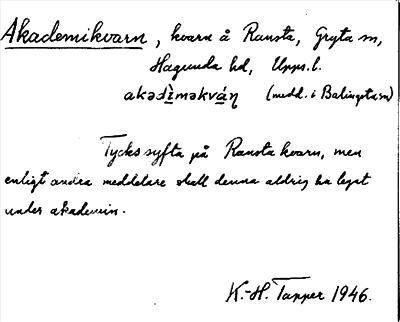 Akademikvarn, kvarn å Ransta, Gryta sn,
Hagunda hd, Upps. l.
akadìmǝkváɳ (medd. i Balingsta sn)
Tycks syfta på Ransta kvarn, men
enligt andra meddelare skall denna aldrig ha legat
under akademin.
K.-H. Tapper 1946.